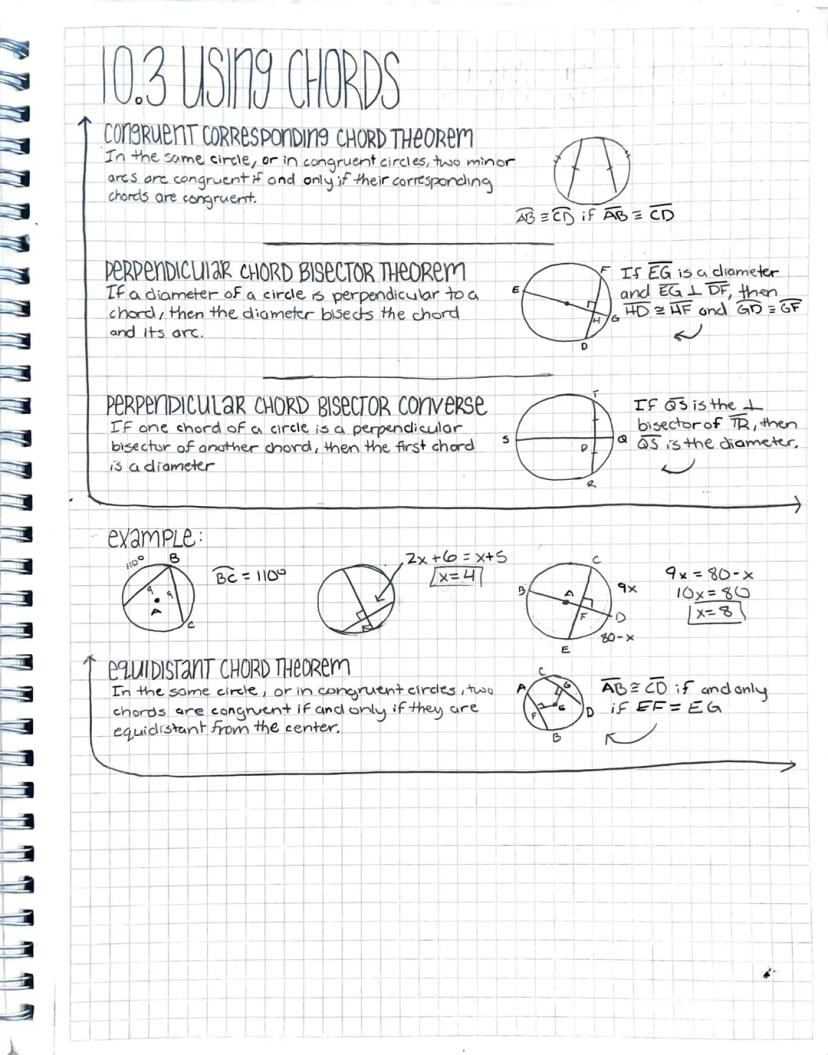 10.3 USING CHORDS
CONGRUENT CORRESPONDING CHORD THEOREM
In the same circle, or in congruent circles, two minor
arcs are congruent if and only if their corresponding
chords are congruent.
AB ≅ CD if AB ≅ CD
PERPENDICULAR CHORD BISECTOR THEOREM
If a diameter of a circle is perpendicular to a
chord, then the diameter bisects the chord
and its arc.
E
F
H
G
D
If EG is a diameter
and EG ⊥ DF, then
HD ≅ HF and GD ≅ GF
PERPENDICULAR CHORD BISECTOR CONVERSE
If one chord of a circle is a perpendicular
bisector of another chord, then the first chord
is a diameter
T
S
P
Q
R
If QS is the ⊥
bisector of TR, then
QS is the diameter.
example:
110°
B
9
9
A
C
BC = 110°
2x + 6 = x + 5
x = 4
C
B
A
9x
F
D
80 - x
E
9x = 80 - x
10x = 80
x = 8
EQUIDISTANT CHORD THEOREM
In the same circle, or in congruent circles, two
chords are congruent if and only if they are
equidistant from the center.
C
A
G
F
E
D
B
AB ≅ CD if and only
if EF = EG